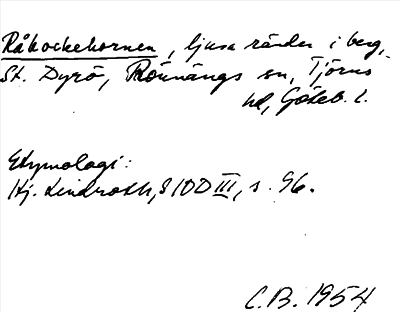 Råbockehornen, ljusa ränder i berg,
St. Dyrö, Rönnängs sn, Tjörns
hd, Göteb. l.
Etymologi:
Hj. Lindroth, SIOD III, s. 96.
C.B. 1954